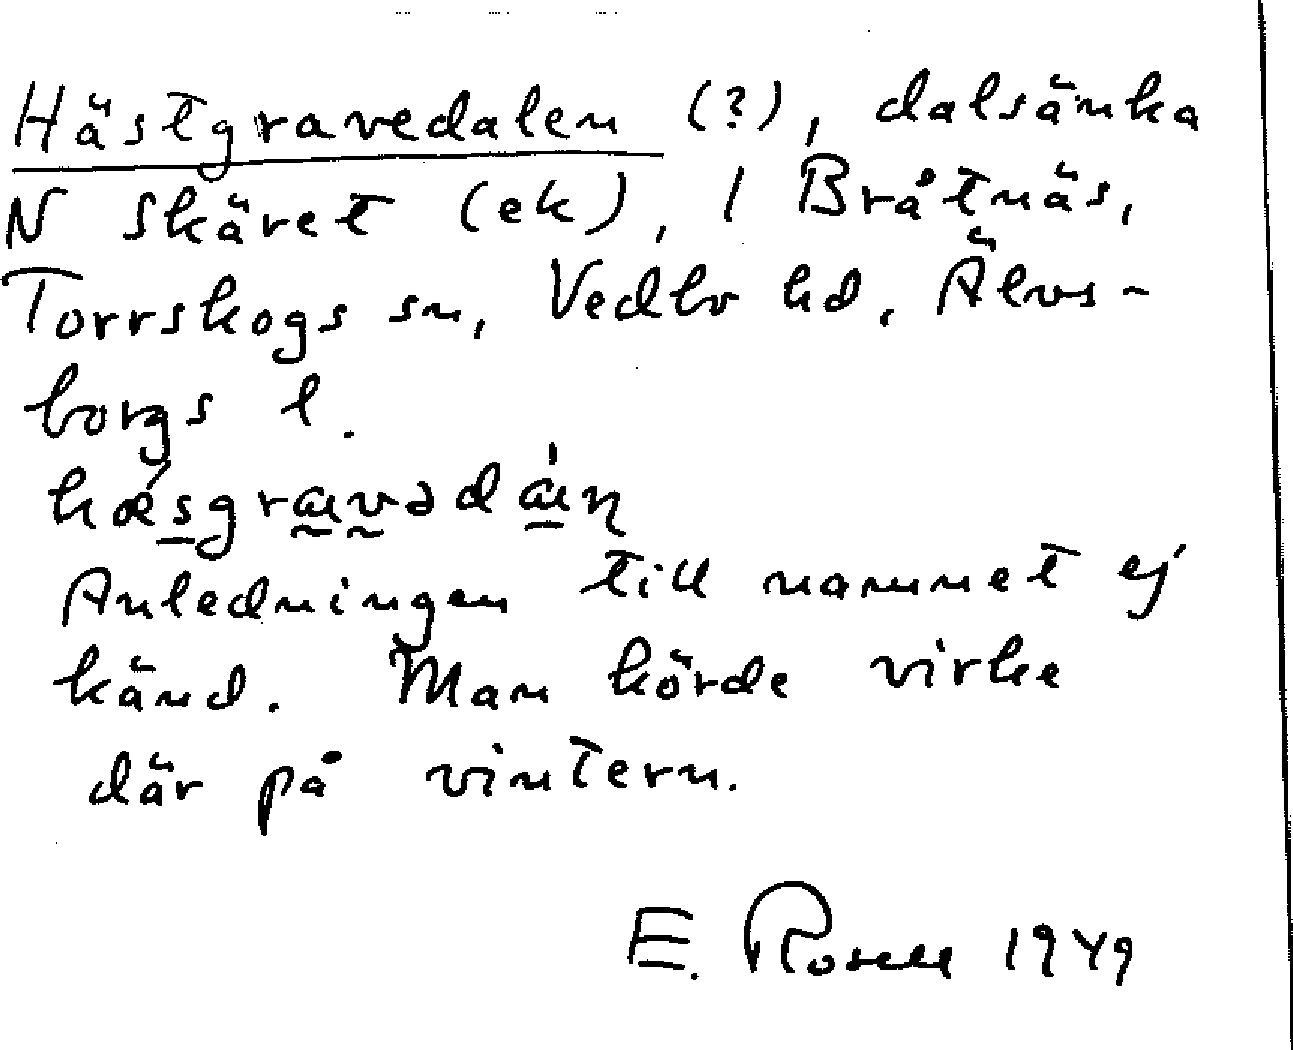 Hästgravedalen (?), dalsänka
N Skäret (ek), 1 Bråtnäs,
Torrskogs sn, Vedbo hd, Älvs-
borgs l.
Anledningen till namnet ej
känd. Man körde virke
där på vintern.
E. Rosell 1949